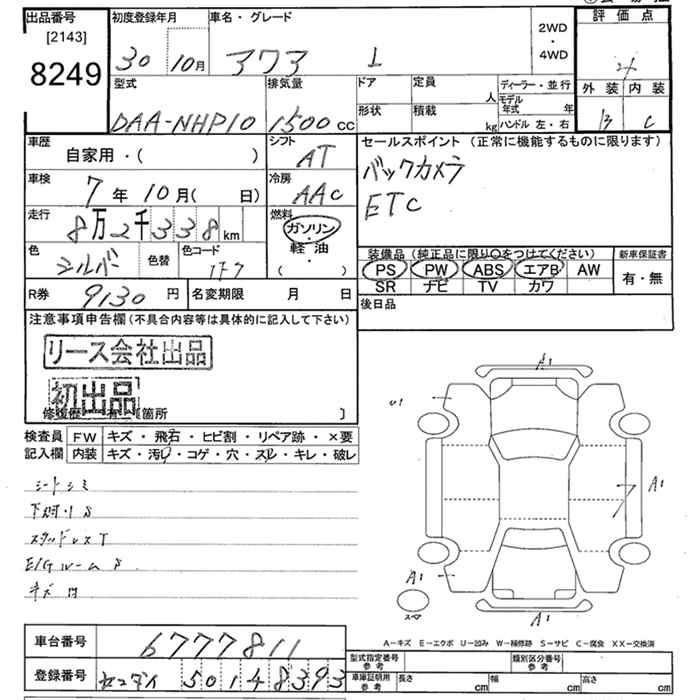 出品番号 初度登録年月 車名・グレード 2WD・4WD 評価点
[2143]
8249 30 10月
型式 排気量 ドア 定員 人 ディーラー・並行 外装 内装
モデル年式 年 B C
DAA-NHP10 1500 CC 形状 積載 kg ハンドル 左・右
車歴 シフト セールスポイント (正常に機能するものに限ります)
自家用・( ) AT バックカメラ
車検 7年 10月( 日) 冷房 AAC ETC
走行 8万2千338km 燃料 ガソリン・軽油・( )
色 シルバー 色替 色コード 1F7
装備品 (純正品に限り○をつけてください) 新車保証書
PS PW ABS エアB AW 有・無
SR ナビ TV カワ
R券 9130円 名変期限 月 日 後日品
注意事項申告欄 (不具合内容等は具体的に記入して下さい)
リース会社出品
初出品
修復歴 有 [箇所 ]
検査員 FW キズ・飛石・ヒビ割・リペア跡・×要
記入欄 内装 キズ・汚レ・コゲ・穴・スレ・キレ・破レ
シートシミ
スタッドレスT
E/Gルーム S
A1
U1
A1
A1
A1
スペア
A-キズ E-エクボ U-凹み W-補修跡 S-サビ C-腐食 XX-交換済
車台番号 6777811
型式指定番号 参考 類別区分番号 参考
登録番号 センダイ 501 4 8393
車庫証明用 参考 長さ cm 幅 cm 高さ cm